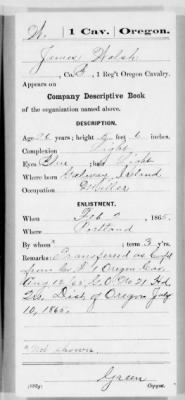 W. | 1 Cav. | Oregon.
James Walsh
, Co. , 1 Reg't Oregon Cavalry.
Appears on
Company Descriptive Book
of the organization named above.
DESCRIPTION.
Age 26 years; height 5 feet 6 inches.
Complexion Light
Eyes Blue ; hair Light
Where born Galway, Ireland
Occupation Miller
ENLISTMENT.
When Feb , 1865.
Where Portland
By whom * ; term 3 y'rs.
Remarks: Transferred as Corpl
from Co. 1 Oregon Cav.
Aug 12/65 G.O. No 21 Hd
Qrs. Dist. of Oregon July
10, 1865.
*Not shown.
Green
Copyist.